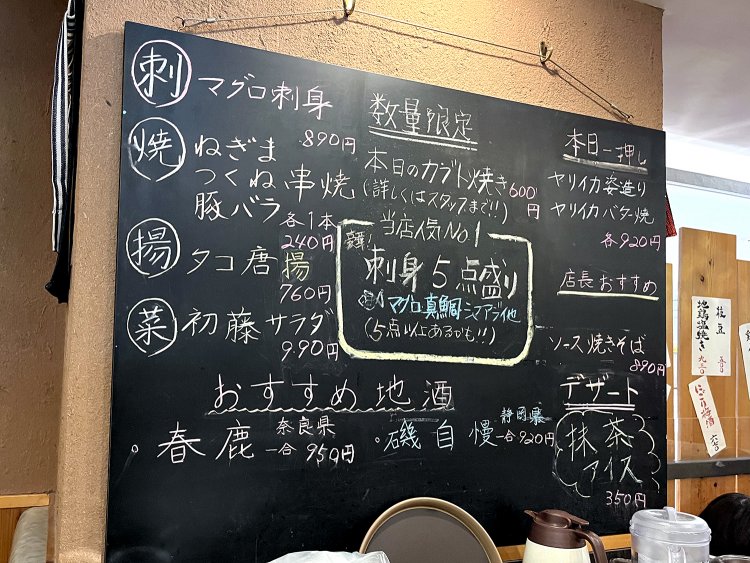 刺 マグロ刺身
890円
焼 ねぎま
つくね 串焼
豚バラ
各1本
240円
揚 タコ唐揚
760円
菜 初藤サラダ
990円
数量限定
本日のカブト焼き 600円
(詳しくはスタッフまで!!)
当店人気No.1
刺身5点盛り
マグロ、真鯛、シマアジ他
(5点以上あるかも!!)
本日一押し
ヤリイカ姿造り
ヤリイカバター焼
各920円
店長おすすめ
ソース焼きそば
890円
デザート
抹茶
アイス
350円
おすすめ地酒
・春鹿 奈良県
一合 950円
・磯自慢 静岡県
一合 920円
枝豆
地鶏塩焼き 九三〇
にごり梅酒 六七〇